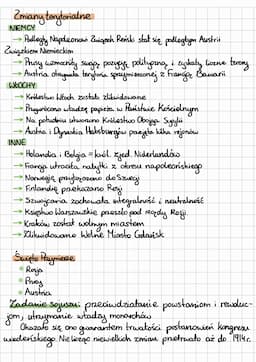 Zmiany terytorialne
NIEMCY
→ Podległy Napoleonowi Związek Reński stał się podległym Austrii
Związkiem Niemieckim
→ Prusy wzmocniły swoją pozycję polityczną i zyskały liczne tereny
→ Austria otrzymała terytoria sprzymierzonej z Francją Bawarii
WŁOCHY
→ Królestwo Włoch zostało zlikwidowane
→ Przywrócono władzę papieża w Państwie Kościelnym
→ Na południu utworzono Królestwo Obojga Sycylii
→ Austria i Dynastia Habsburgów przejęła kilka rejonów
INNE
→ Holandia i Belgia = król. zjed. Niderlandów
→ Francja utraciła nabytki z okresu napoleońskiego
→ Norwegię przyłączono do Szwecji
→ Finlandię przekazano Rosji
→ Szwajcaria zachowała integralność i neutralność
→ Księstwo Warszawskie przeszło pod rządy Rosji
→ Kraków został wolnym miastem
→ Zlikwidowano Wolne Miasto Gdańsk
Święte Przymierze
Rosja
Prusy
Austria
Zadanie sojuszu: przeciwdziałanie powstaniom i rewoluc-
jom, utrzymanie władzy monarchów
Okazało się ono gwarantem trwałości postanowień kongresu
wiedeńskiego. Nie licząc niewielkich zmian przetrwało aż do 1914r.